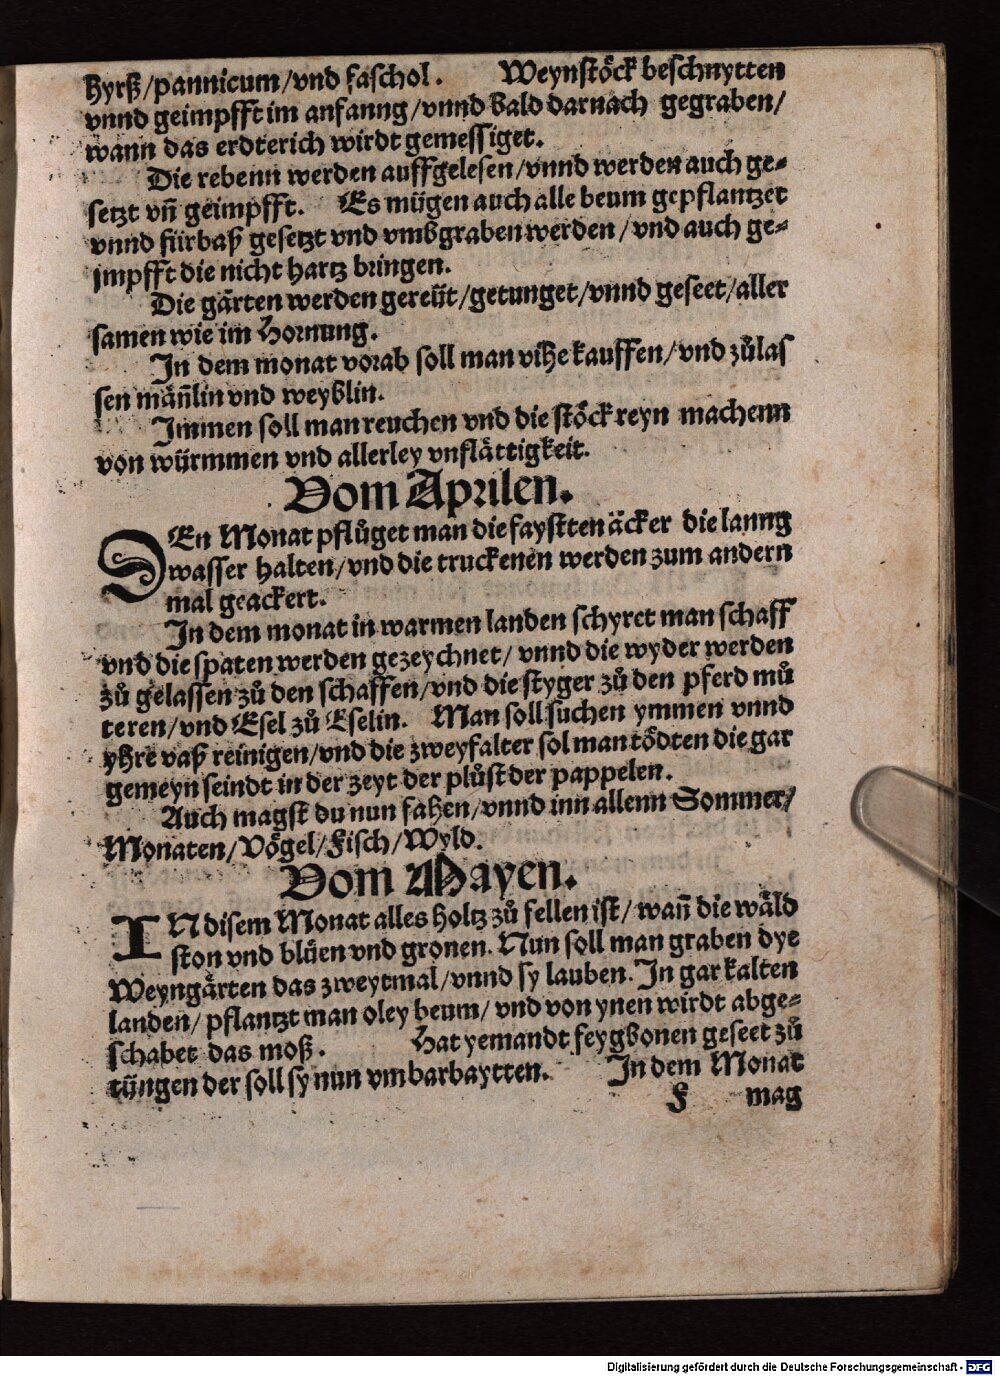 Hyrß/pannicum/vnd faschol. Weynstöck beschnytten
vnnd geimpfft im anfanng/vnnd bald darnach gegraben/
wann das erdterich wirdt gemessiget.
Die rebenn werden auffgelesen/vnnd werden auch ge⸗
setzt vn̄ geimpfft. Es mügen auch alle beum gepflantzet
vnnd fürbaß gesetzt vnd vmbgraben werden/vnd auch ge⸗
jmpfft die nicht hartz bringen.
Die gärten werden gereüt/getunget/vnnd geseet/aller
samen wie im Hornung.
In dem monat vorab soll man vihe kauffen/vnd zůlas
sen män̄lin vnd weyblin.
Immen soll man reuchen vnd die stöck reyn machenn
von würmmen vnd allerley vnflättigkeit.
Vom Aprilen.
DEn Monat pflüget man die faystten äcker die lanng
wasser halten/vnd die truckenen werden zum andern
mal geackert.
In dem monat in warmen landen schyret man schaff
vnd die spaten werden gezeychnet/vnnd die wyder werden
zů gelassen zů den schaffen/vnd die styger zů den pferd mů
teren/vnd Esel zů Eselin. Man soll suchen ymmen vnnd
yhre vaß reinigen/vnd die zweyfalter sol man tödten die gar
gemeyn seindt in der zeyt der plůst der pappelen.
Auch magst du nun fahen/vnnd inn allenn Sommer/
Monaten/Vögel/Fisch/Wyld.
Vom Mayen.
IN disem Monat alles holtz zů fellen ist/wan̄ die wäld
ston vnd blüen vnd gronen. Nun soll man graben dye
Weyngärten das zweytmal/vnnd sy lauben. In gar kalten
landen/pflantzt man oley beum/vnd von ynen wirdt abge⸗
schabet das moß. Hat yemandt feygbonen geseet zů
tüngen der soll sy nun vmbarbaytten. In dem Monat
F mag
Digitalisierung gefördert durch die Deutsche Forschungsgemeinschaft - DFG